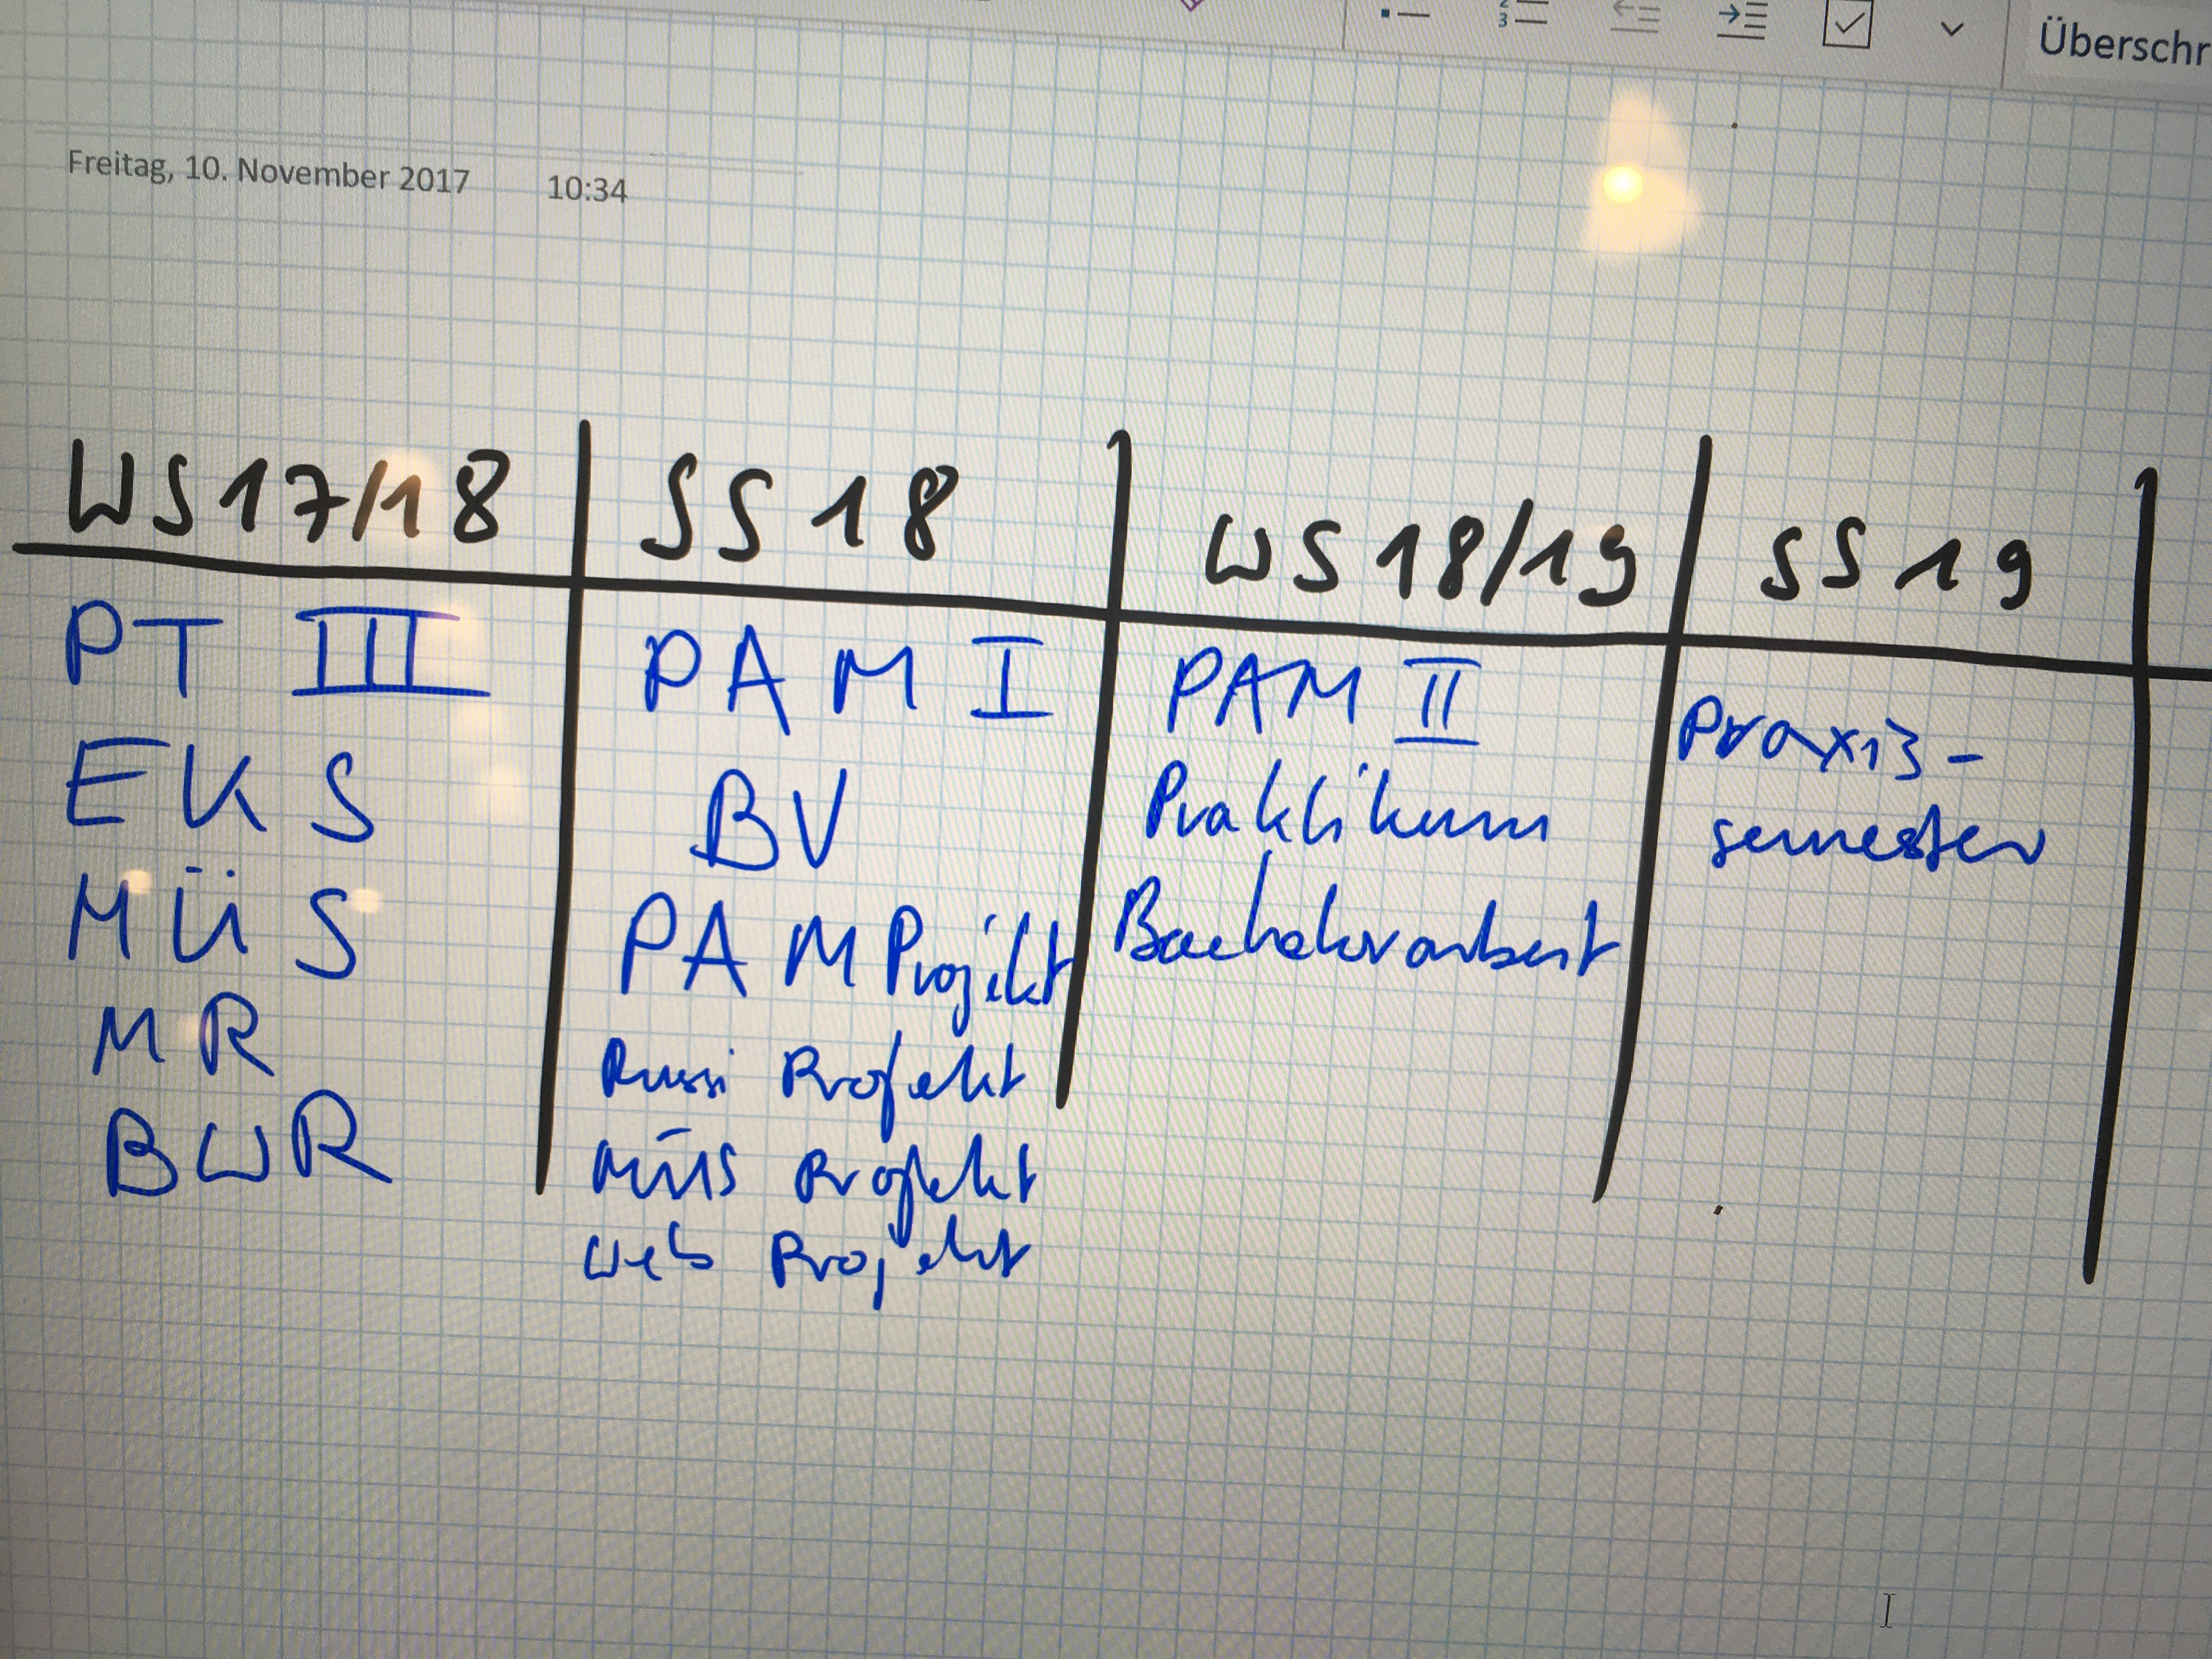 Überschr
Freitag, 10. November 2017 10:34
WS 17/18 SS 18 WS 18/19 SS 19
PT III
EKS
MÜS
MR
BWR
PAM I
BV
PAM Projekt
Russi Projekt
MÜS Projekt
Web Projekt
PAM II
Praktikum
Bachelorarbeit
Praxis-
semester